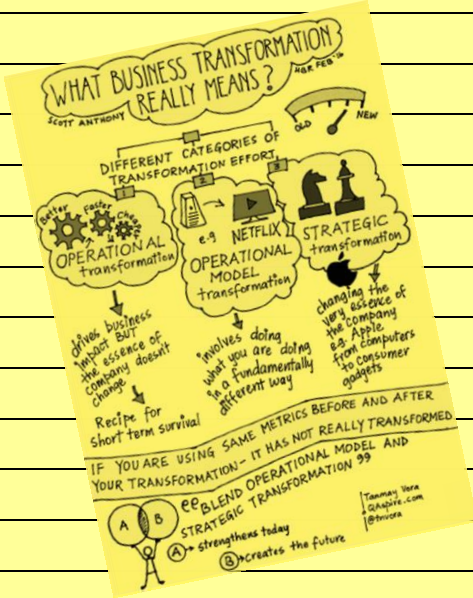 WHAT BUSINESS TRANSFORMATION
REALLY MEANS?
SCOTT ANTHONY
HBR FEB '16
OLD
NEW
DIFFERENT CATEGORIES OF
TRANSFORMATION EFFORT
1
Better
Faster
Cheaper
OPERATIONAL
transformation
drives business
impact BUT
the essence of
company doesn't
change
Recipe for
short term survival
2
e.g
NETFLIX
OPERATIONAL
MODEL
transformation
involves doing
what you are doing
in a fundamentally
different way
3
STRATEGIC
transformation
changing the
very essence of
the company
e.g. Apple
from computers
to consumer
gadgets
IF YOU ARE USING SAME METRICS BEFORE AND AFTER
YOUR TRANSFORMATION - IT HAS NOT REALLY TRANSFORMED
A
B
"BLEND OPERATIONAL MODEL AND
STRATEGIC TRANSFORMATION"
A → strengthens today
B → creates the future
Tanmay Vora
QAspire.com
@tnvora